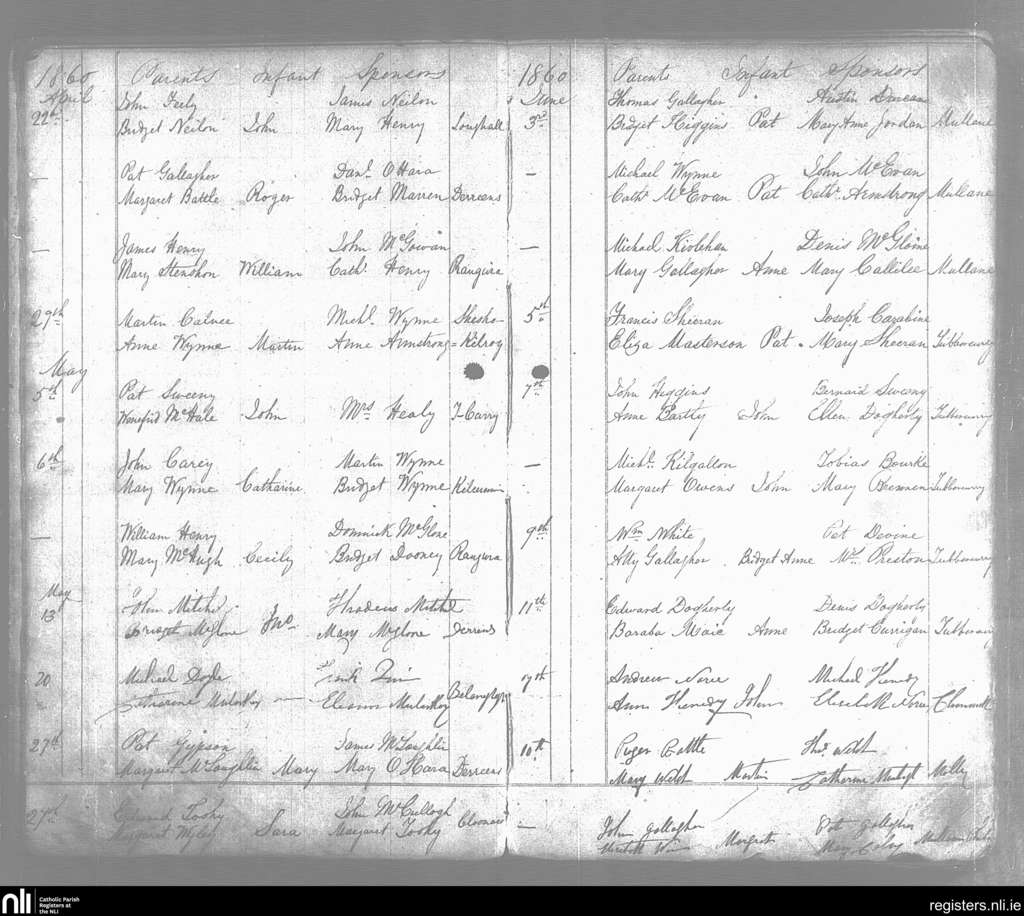 1860 Parents Infant Sponsors
April John Feely James Neilon
22nd Bridget Neilon John Mary Henry Loughall
— Pat Gallagher Danl. O Hara
Margaret Battle Roger Bridget Marren Derreens
— James Henry John McGowan
Mary Stenshon William Cath. Henry Rangira
29th Martin Calnee Michl. Wynne Shesho-
Anne Wynne Martin Anne Armstrong =Kilroy
May
5th Pat Sweeny
Wenefrid McHale John Mrs Healy T-Curry
6th John Carey Martin Wynne
Mary Wynne Catharine Bridget Wynne
— William Henry Dominick McGlone
Mary McHugh Cecily Bridget Dooney Rangira
May John Mitchel Thadeus Mitchel
13 Bridget McGlone Jno. Mary McGlone Derreens
20 Michael Doyle
Catharine Mularkey — Eleanor Mularkey
27th Pat Gypson James McLoughlin
Margaret McLoughlin Mary Mary O Hara Derreens
27th Tooky John McCullogh
Margaret Sara Margaret Tooky
1860 Parents Infant Sponsors
June Thomas Gallagher Austin Duncan
3rd Bridget Higgins Pat Mary Anne Jordan Mullane
— Michael Wynne John McEvan
Cath. McEvan Pat Cath. Armstrong Mullane
— Michael Kivlehan Denis McGloine
Mary Gallagher Anne Mary Callilee Mullane
5th Francis Sheeran Joseph Carabine
Eliza Masterson Pat. Mary Sheeran Tubbercurry
7th John Higgins Bernard Sweny
Anne Bartly John Ellen Dogherty Tubbercurry
— Michl. Kilgallon Tobias Bourke
Margaret Owens John Mary Brennen Tubbercurry
9th Wm White Pat Devine
Ally Gallagher Bridget Anne Mrs. Preston Tubbercurry
11th Edward Dogherty Denis Dogherty
Baraba Anne Bridget Currigan Tubbercurry
17th Andrew Noree Michael Kennedy
Ann Kennedy John Elisabeth Noree
10th Roger Battle Thos. Welsh
Mary Welsh Martin Catherine
— John Gallagher Pat Gallagher
Margret Mary
nli Catholic Parish
Registers at
the NLI
registers.nli.ie